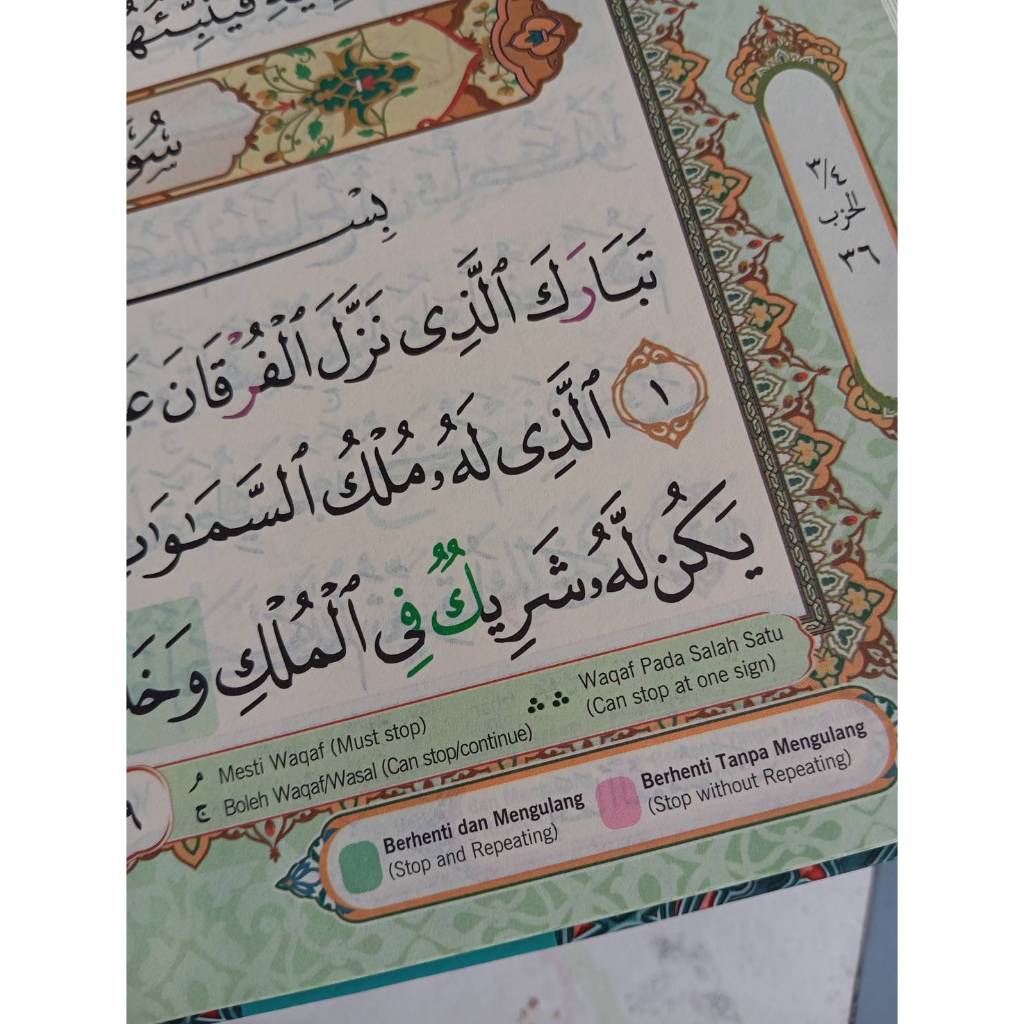 تَبَارَكَ ٱلَّذِى نَزَّلَ ٱلْفُرْقَانَ عَ
١ ٱلَّذِى لَهُۥ مُلْكُ ٱلسَّمَـٰوَٰ
يَكُن لَّهُۥ شَرِيكٌ فِى ٱلْمُلْكِ وَخَ
٣/٤
الحزب
٣٦
م Mesti Waqaf (Must stop)
ج Boleh Waqaf/Wasal (Can stop/continue)
Waqaf Pada Salah Satu
(Can stop at one sign)
Berhenti dan Mengulang
(Stop and Repeating)
Berhenti Tanpa Mengulang
(Stop without Repeating)